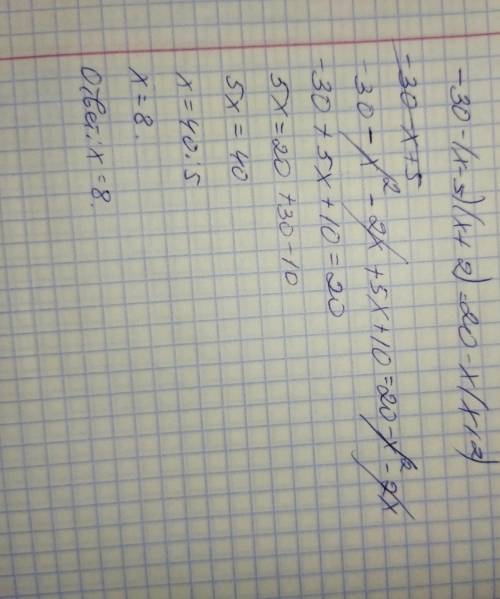 -30-(x-5)(x+2)=20-x(x+2)
-30-x+5
-30-x²-2x+5x+10=20-x²-2x
-30+5x+10=20
5x=20+30-10
5x=40
x=40:5
x=8.
Ответ: x=8.